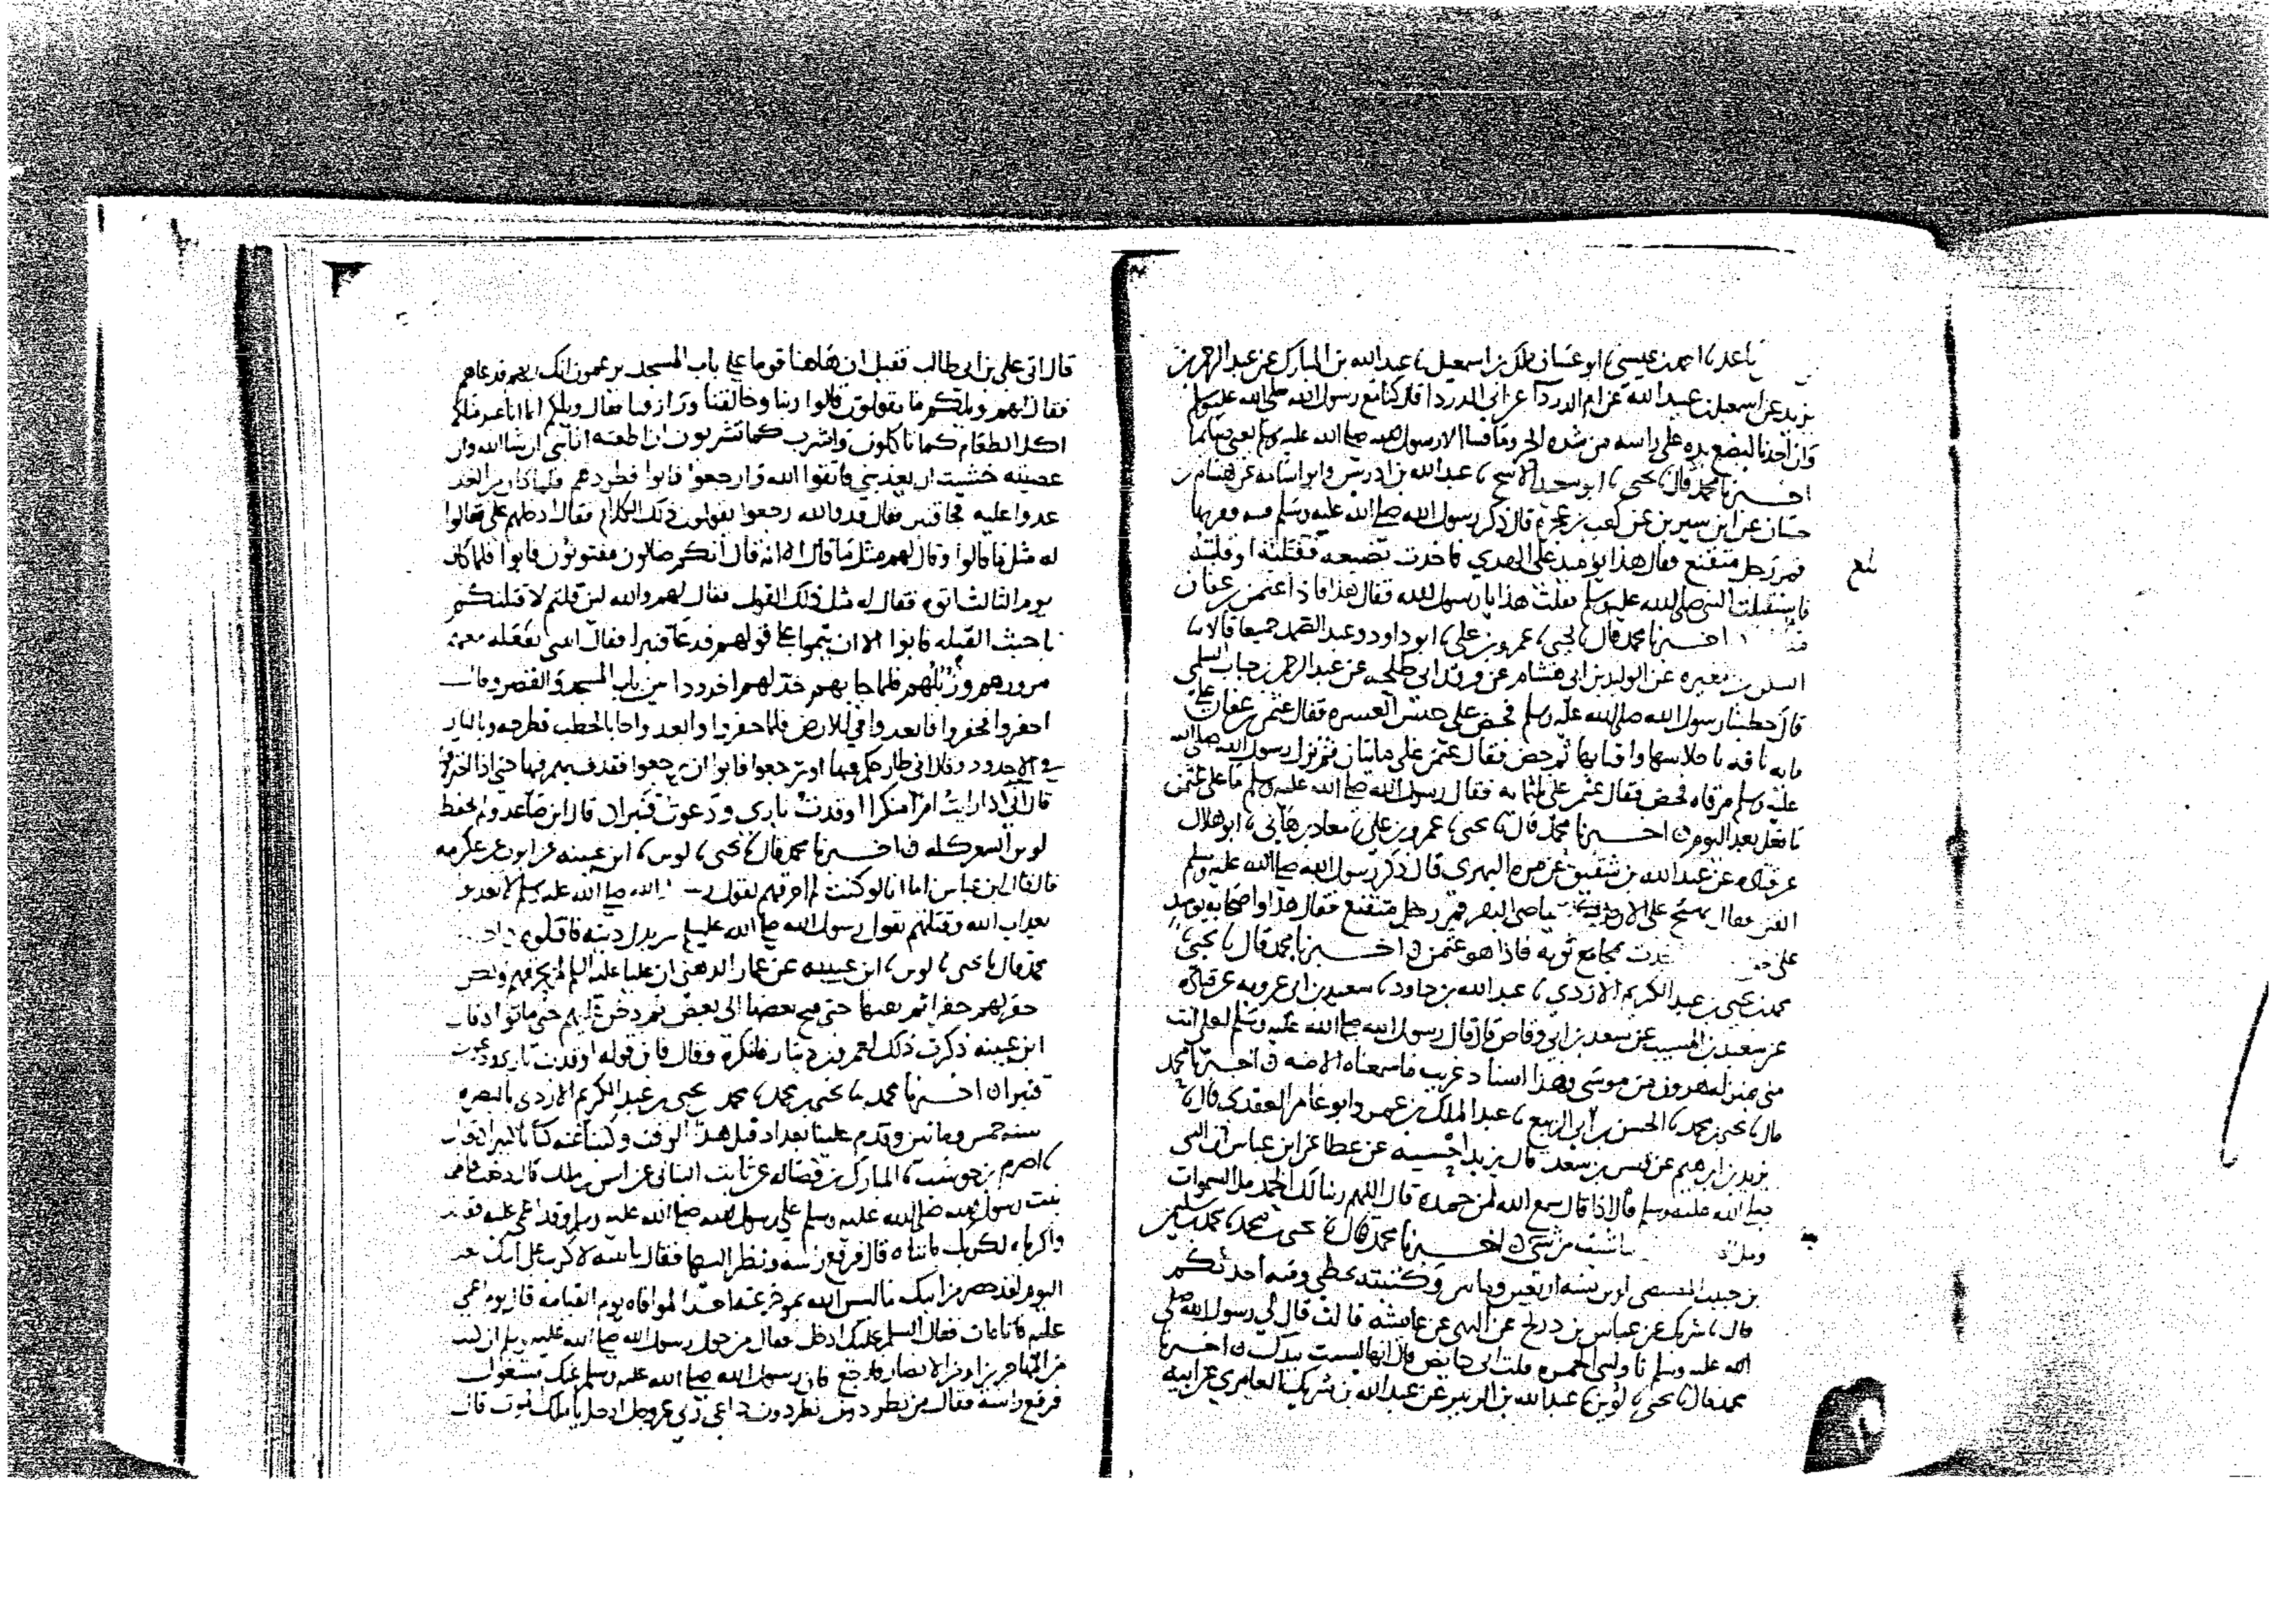 احمد بن عيسى ابو غسان ملك بن اسمعيل عبد الله بن المبارك عن عبد الرحمن بن
يزيد عن اسمعيل بن عبيد الله عن ام الدردا عن ابي الدردا قال كنا مع رسول الله صلى الله عليه وسلم
وان احدنا ليضع يده على راسه من شده الحر وما فينا الا رسول الله صلى الله عليه وسلم
اخبرنا محمد قال يحيى ابو سعيد الاشج عبد الله بن ادريس وابو اسامه عن هشام بن
حسان عن ابن سيرين عن كعب بن عجره قال ذكر رسول الله صلى الله عليه وسلم فتنه فقربها
فمر رجل متقنع فقال هذا يومئذ على الهدي فاخذت بضبعه
فاستقبلت النبي صلى الله عليه وسلم فقلت هذا يا رسول الله فقال هذا فاذا عثمن بن عفان
اخبرنا محمد قال يحيى عمرو بن علي ابو داود وعبد الصمد جميعا قالا
السكن بن مغيره عن الوليد بن ابي هشام عن فرقد ابي طلحه عن عبد الرحمن بن خباب السلمي
قال خطبنا رسول الله صلى الله عليه وسلم فحض على جيش العسره فقال عثمن بن عفان علي
مايه ناقه باحلاسها واقتابها ثم حض فقال عثمن علي مايتان ثم نزل رسول الله صلى الله
عليه وسلم مرقاه فحض فقال عثمن علي ثلثمايه فقال رسول الله صلى الله عليه وسلم ما على عثمن
ما فعل بعد اليوم اخبرنا محمد قال يحيى عمرو بن علي معاذ بن هاني ابو هلال
عن قتاده عن عبد الله بن شقيق عن مره البهزي قال ذكر رسول الله صلى الله عليه وسلم
الفتن فقال فمر رجل متقنع فقال هذا واصحابه يومئذ
على بمجامع ثوبه فاذا هو عثمن اخبرنا محمد قال يحيى
محمد بن يحيى بن عبد الكريم الازدي عبد الله بن داود سعيد بن ابي عروبه عن قتاده
عن سعيد بن المسيب عن سعد بن ابي وقاص قال قال رسول الله صلى الله عليه وسلم لعلي انت
مني بمنزله هرون من موسى وهذا اسناد غريب ما سمعناه الا منه اخبرنا محمد
قال يحيى بن محمد الحسن بن ابي الربيع عبد الملك بن عمرو ابو عامر العقدي قال
يزيد بن ابرهيم عن قيس بن سعد قال يزيد احسبه عن عطا عن ابن عباس ان النبي
صلى الله عليه وسلم كان اذا قال سمع الله لمن حمده قال اللهم ربنا لك الحمد ملا السموات
وملا ما شيت من شي اخبرنا محمد قال يحيى بن محمد محمد بن سليمن
بن حبيب المصيصي لوين سنه اربعين ومايتين وكتبته بخطي ومنه احدثكم
قال شريك عن عباس بن ذريح عن البهي عن عايشه قالت قال لي رسول الله صلى
الله عليه وسلم ناوليني الخمره قلت اني حايض قال انها ليست بيدك اخبرنا
محمد قال يحيى لوين عبد الله بن الزبير عن عبد الله بن شريك العامري عن ابيه
قال اتي علي بن ابي طالب فقيل ان هاهنا قوما على باب المسجد يزعمون انك ربهم فدعاهم
فقال لهم ويلكم ما تقولون قالوا ربنا وخالقنا ورازقنا فقال ويلكم انما انا عبد مثلكم
اكل الطعام كما تاكلون واشرب كما تشربون ان اطعته اثابني ان شا الله وان
عصيته خشيت ان يعذبني فاتقوا الله وارجعوا فابوا فطردهم فلما كان من الغد
غدوا عليه فجا قنبر فقال قد والله رجعوا يقولون ذلك الكلام فقال ادخلهم علي فقالوا
له مثل ما قالوا وقال لهم مثل ما قال الا انه قال انكم ضالون مفتونون فابوا فلما كان
يوم الثالث اتوه فقالو له مثل ذلك القول فقال لهم والله لين قلتم لاقتلنكم
باخبث القتله فابوا الا ان يتموا على قولهم فدعا قنبرا فقال
مرورهم وزبلهم فلما جا بهم خد لهم اخدودا بين باب المسجد والقصر وقال
احفروا فحفروا فابعدوا في الارض فلما حفروا وابعدوا جا بالحطب فطرحه وبالنار
في الاخدود وقال اني طارحكم فيها او ترجعوا فابوا ان يرجعوا فقذف بهم فيها حتى اذا احترقوا
قال اني اذا رايت امرا منكرا اوقدت ناري ودعوت قنبرا قال ابن صاعد ولم احفظ
لوين الشعر كله اخبرنا محمد قال يحيى لوين ابن عيينه عن ايوب عن عكرمه
قال قال ابن عباس اما انا لو كنت لم احرقهم لقول رسول الله صلى الله عليه وسلم لا تعذبوا
بعذاب الله وقتلتهم لقول رسول الله صلى الله عليه وسلم من بدل دينه فاقتلوه
محمد قال يحيى لوين ابن عيينه عن عمار الدهني ان عليا عليه السلم لم يحرقهم ولكن
حفر لهم حفرا ثم نقبها حتى فتح بعضها الى بعض ثم دخن عليهم حتى ماتوا قال
ابن عيينه ذكرت ذلك لعمرو بن دينار فانكره وقال فاين قوله اوقدت ناري ودعوت
قنبرا اخبرنا محمد يحيى بن محمد محمد بن يحيى بن عبد الكريم الازدي بالبصره
سنه خمس ومايتين وقدم علينا بغداد قبل هذا الوقت وكتبنا عنه
اصرم بن حوشب المبارك بن فضاله عن ثابت البناني عن انس بن ملك قال دخلت فاطمه
بنت رسول الله صلى الله عليه وسلم على رسول الله صلى الله عليه وسلم وقد اغمي عليه
واكرباه لكربك يا ابتاه قال فرفع راسه ونظر اليها فقال يا بنيه لا كرب على ابيك بعد
اليوم لقد حضر من ابيك ما ليس الله بموخر عنه احدا لموافاه يوم القيامه قال ثم اغمي
عليه فقال السلم عليك ادخل فقال من حول رسول الله صلى الله عليه وسلم ان كنت
من المهاجرين او من الانصار فارجع فان رسول الله صلى الله عليه وسلم عنك مشغول
فرفع راسه فقال من تطردون تطردون داعي ربي عز وجل ادخل يا ملك الموت قال